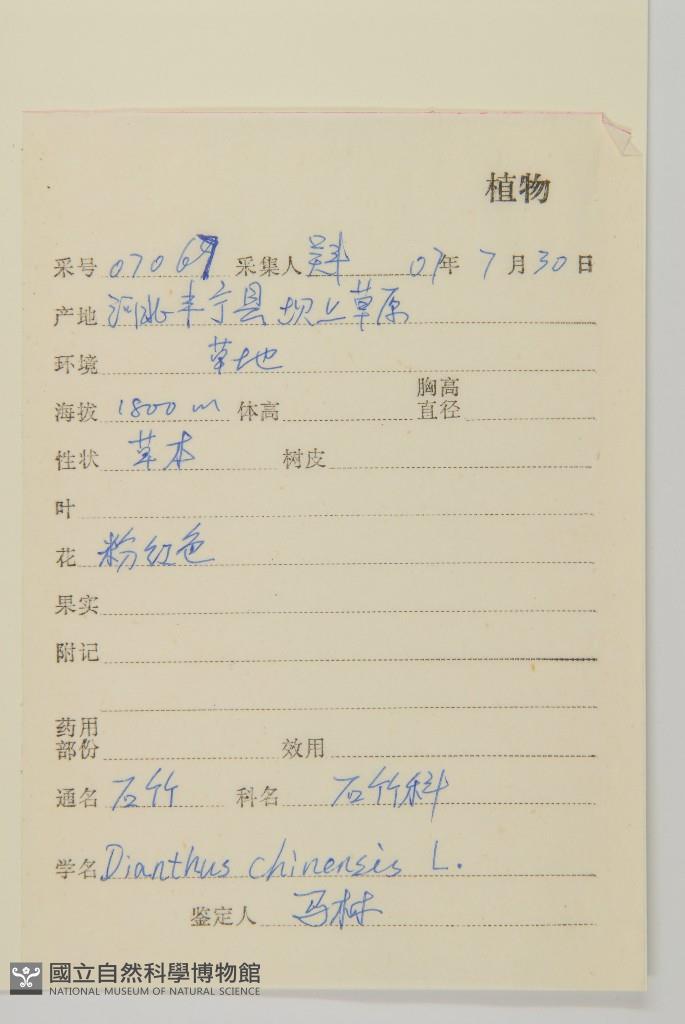 植物
采号 07069 采集人 07年 7月30日
产地 河北丰宁县坝上草原
环境 草地
海拔 1800 m 体高 胸高直径
性状 草本 树皮
叶
花 粉红色
果实
附记
药用部份 效用
通名 石竹 科名 石竹科
学名 Dianthus chinensis L.
鉴定人 马林
國立自然科學博物館
NATIONAL MUSEUM OF NATURAL SCIENCE